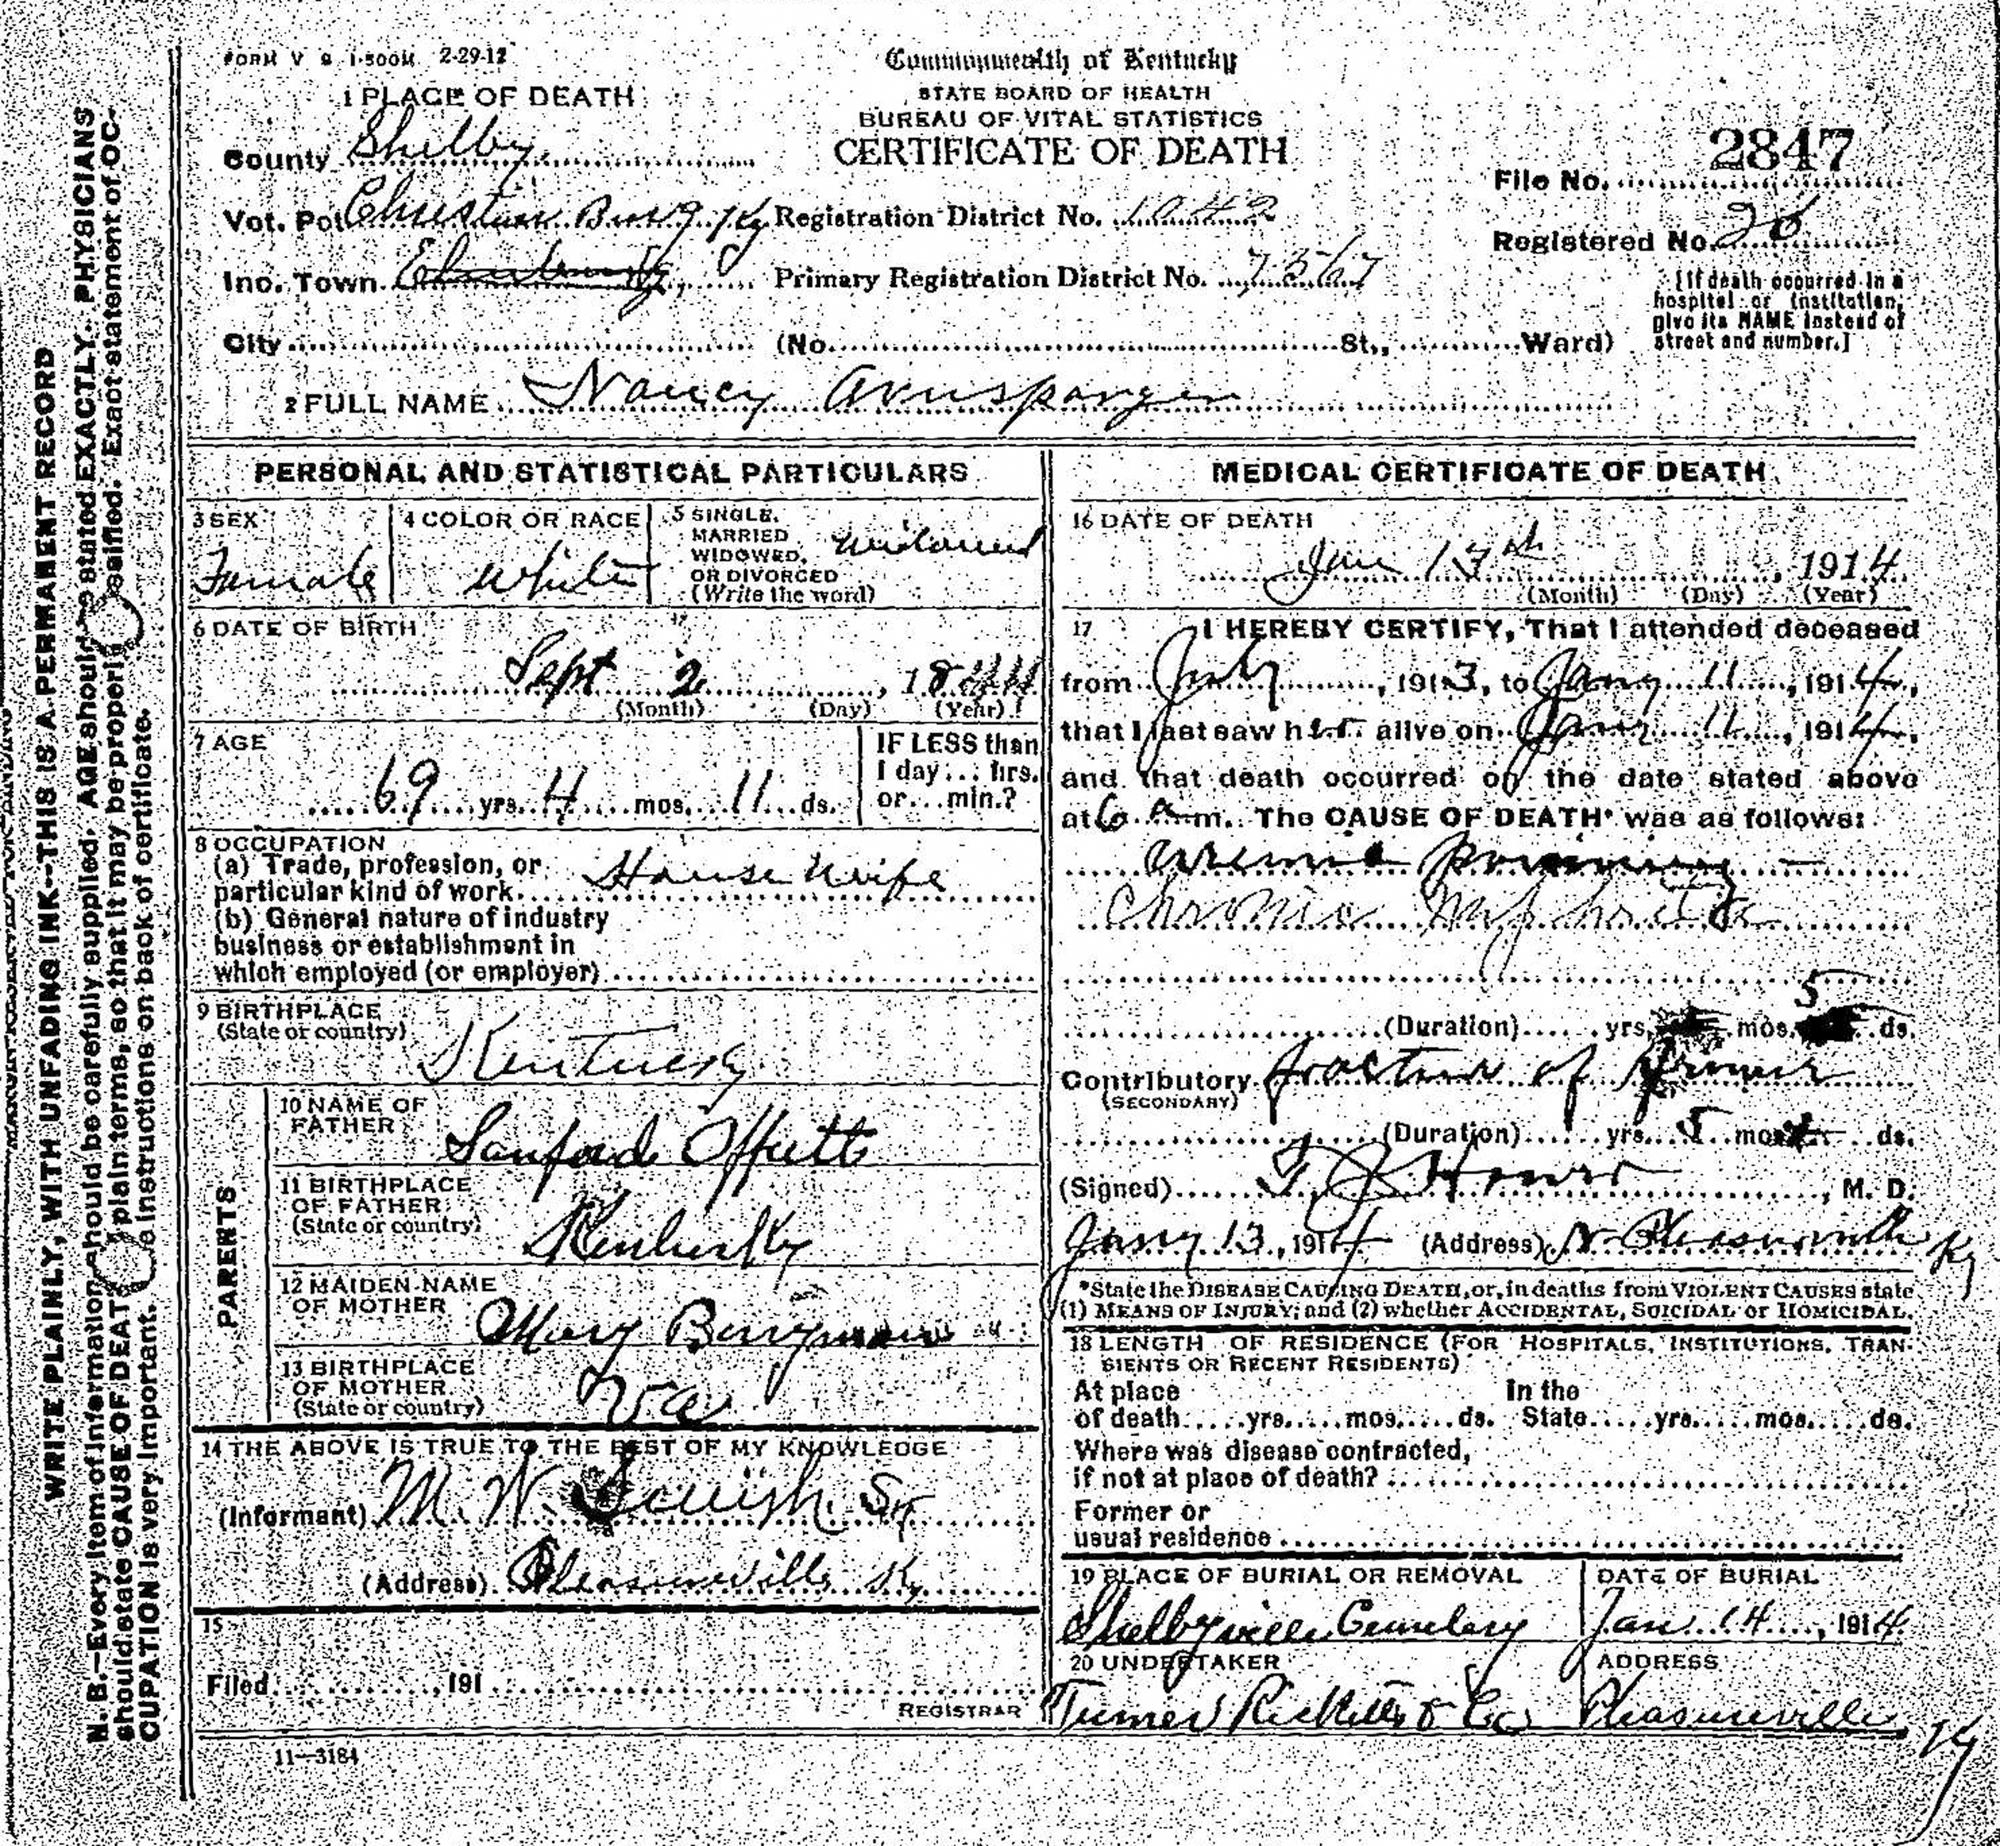 FORM V S 1-500M 2-29-12
Commonwealth of Kentucky
STATE BOARD OF HEALTH
BUREAU OF VITAL STATISTICS
CERTIFICATE OF DEATH
1 PLACE OF DEATH
County Shelby
Vot. Pct Christian Burg Ky Registration District No. 1042
Inc. Town Primary Registration District No. 7567
City (No. St., Ward)
File No. 2847
Registered No.
[If death occurred in a
hospital or institution,
give its NAME instead of
street and number.]
2 FULL NAME Nancy Arnsparger
PERSONAL AND STATISTICAL PARTICULARS
3 SEX
Female
4 COLOR OR RACE
White
5 SINGLE,
MARRIED
WIDOWED,
OR DIVORCED
(Write the word)
Widowed
6 DATE OF BIRTH
Sept 2, 1844
(Month) (Day) (Year)
7 AGE
69 yrs. 4 mos. 11 ds.
IF LESS than
1 day... hrs.
or... min.?
8 OCCUPATION
(a) Trade, profession, or
particular kind of work. House Wife
(b) General nature of industry
business or establishment in
which employed (or employer)
9 BIRTHPLACE
(State or country)
Kentucky
PARENTS
10 NAME OF
FATHER
Sanford Offutt
11 BIRTHPLACE
OF FATHER
(State or country)
Kentucky
12 MAIDEN NAME
OF MOTHER
Mary Berryman
13 BIRTHPLACE
OF MOTHER
(State or country)
Va
14 THE ABOVE IS TRUE TO THE BEST OF MY KNOWLEDGE
(Informant) M. W. Sr
(Address) Pleasureville Ky
15
Filed , 191
REGISTRAR
11-3184
MEDICAL CERTIFICATE OF DEATH
16 DATE OF DEATH
Jan 13th, 1914
(Month) (Day) (Year)
17 I HEREBY CERTIFY, That I attended deceased
from July, 1913, to Jany 11, 1914,
that I last saw her alive on Jany 11, 1914,
and that death occurred on the date stated above
at 6 A m. The CAUSE OF DEATH* was as follows:
Uremic poisoning -
Chronic Nephritis
(Duration) yrs. mos. 5 ds.
Contributory fracture of femur
(SECONDARY)
(Duration) yrs. 5 mos. ds.
(Signed) M. D.
Jany 13, 1914 (Address) N. Pleasureville Ky
*State the DISEASE CAUSING DEATH, or, in deaths from VIOLENT CAUSES state
(1) MEANS OF INJURY; and (2) whether ACCIDENTAL, SUICIDAL or HOMICIDAL.
18 LENGTH OF RESIDENCE (FOR HOSPITALS, INSTITUTIONS, TRAN-
SIENTS OR RECENT RESIDENTS)
At place In the
of death yrs. mos. ds. State yrs. mos. ds.
Where was disease contracted,
if not at place of death?
Former or
usual residence
19 PLACE OF BURIAL OR REMOVAL
Shelbyville Cemetery
DATE OF BURIAL
Jan 14, 1914
20 UNDERTAKER
Turner Ricketts & Co
ADDRESS
Pleasureville Ky
WRITE PLAINLY, WITH UNFADING INK--THIS IS A PERMANENT RECORD
N. B.—Every item of information should be carefully supplied. AGE should be stated EXACTLY. PHYSICIANS
should state CAUSE OF DEATH plain terms, so that it may be properly classified. Exact statement of OC-
CUPATION is very important. instructions on back of certificate.